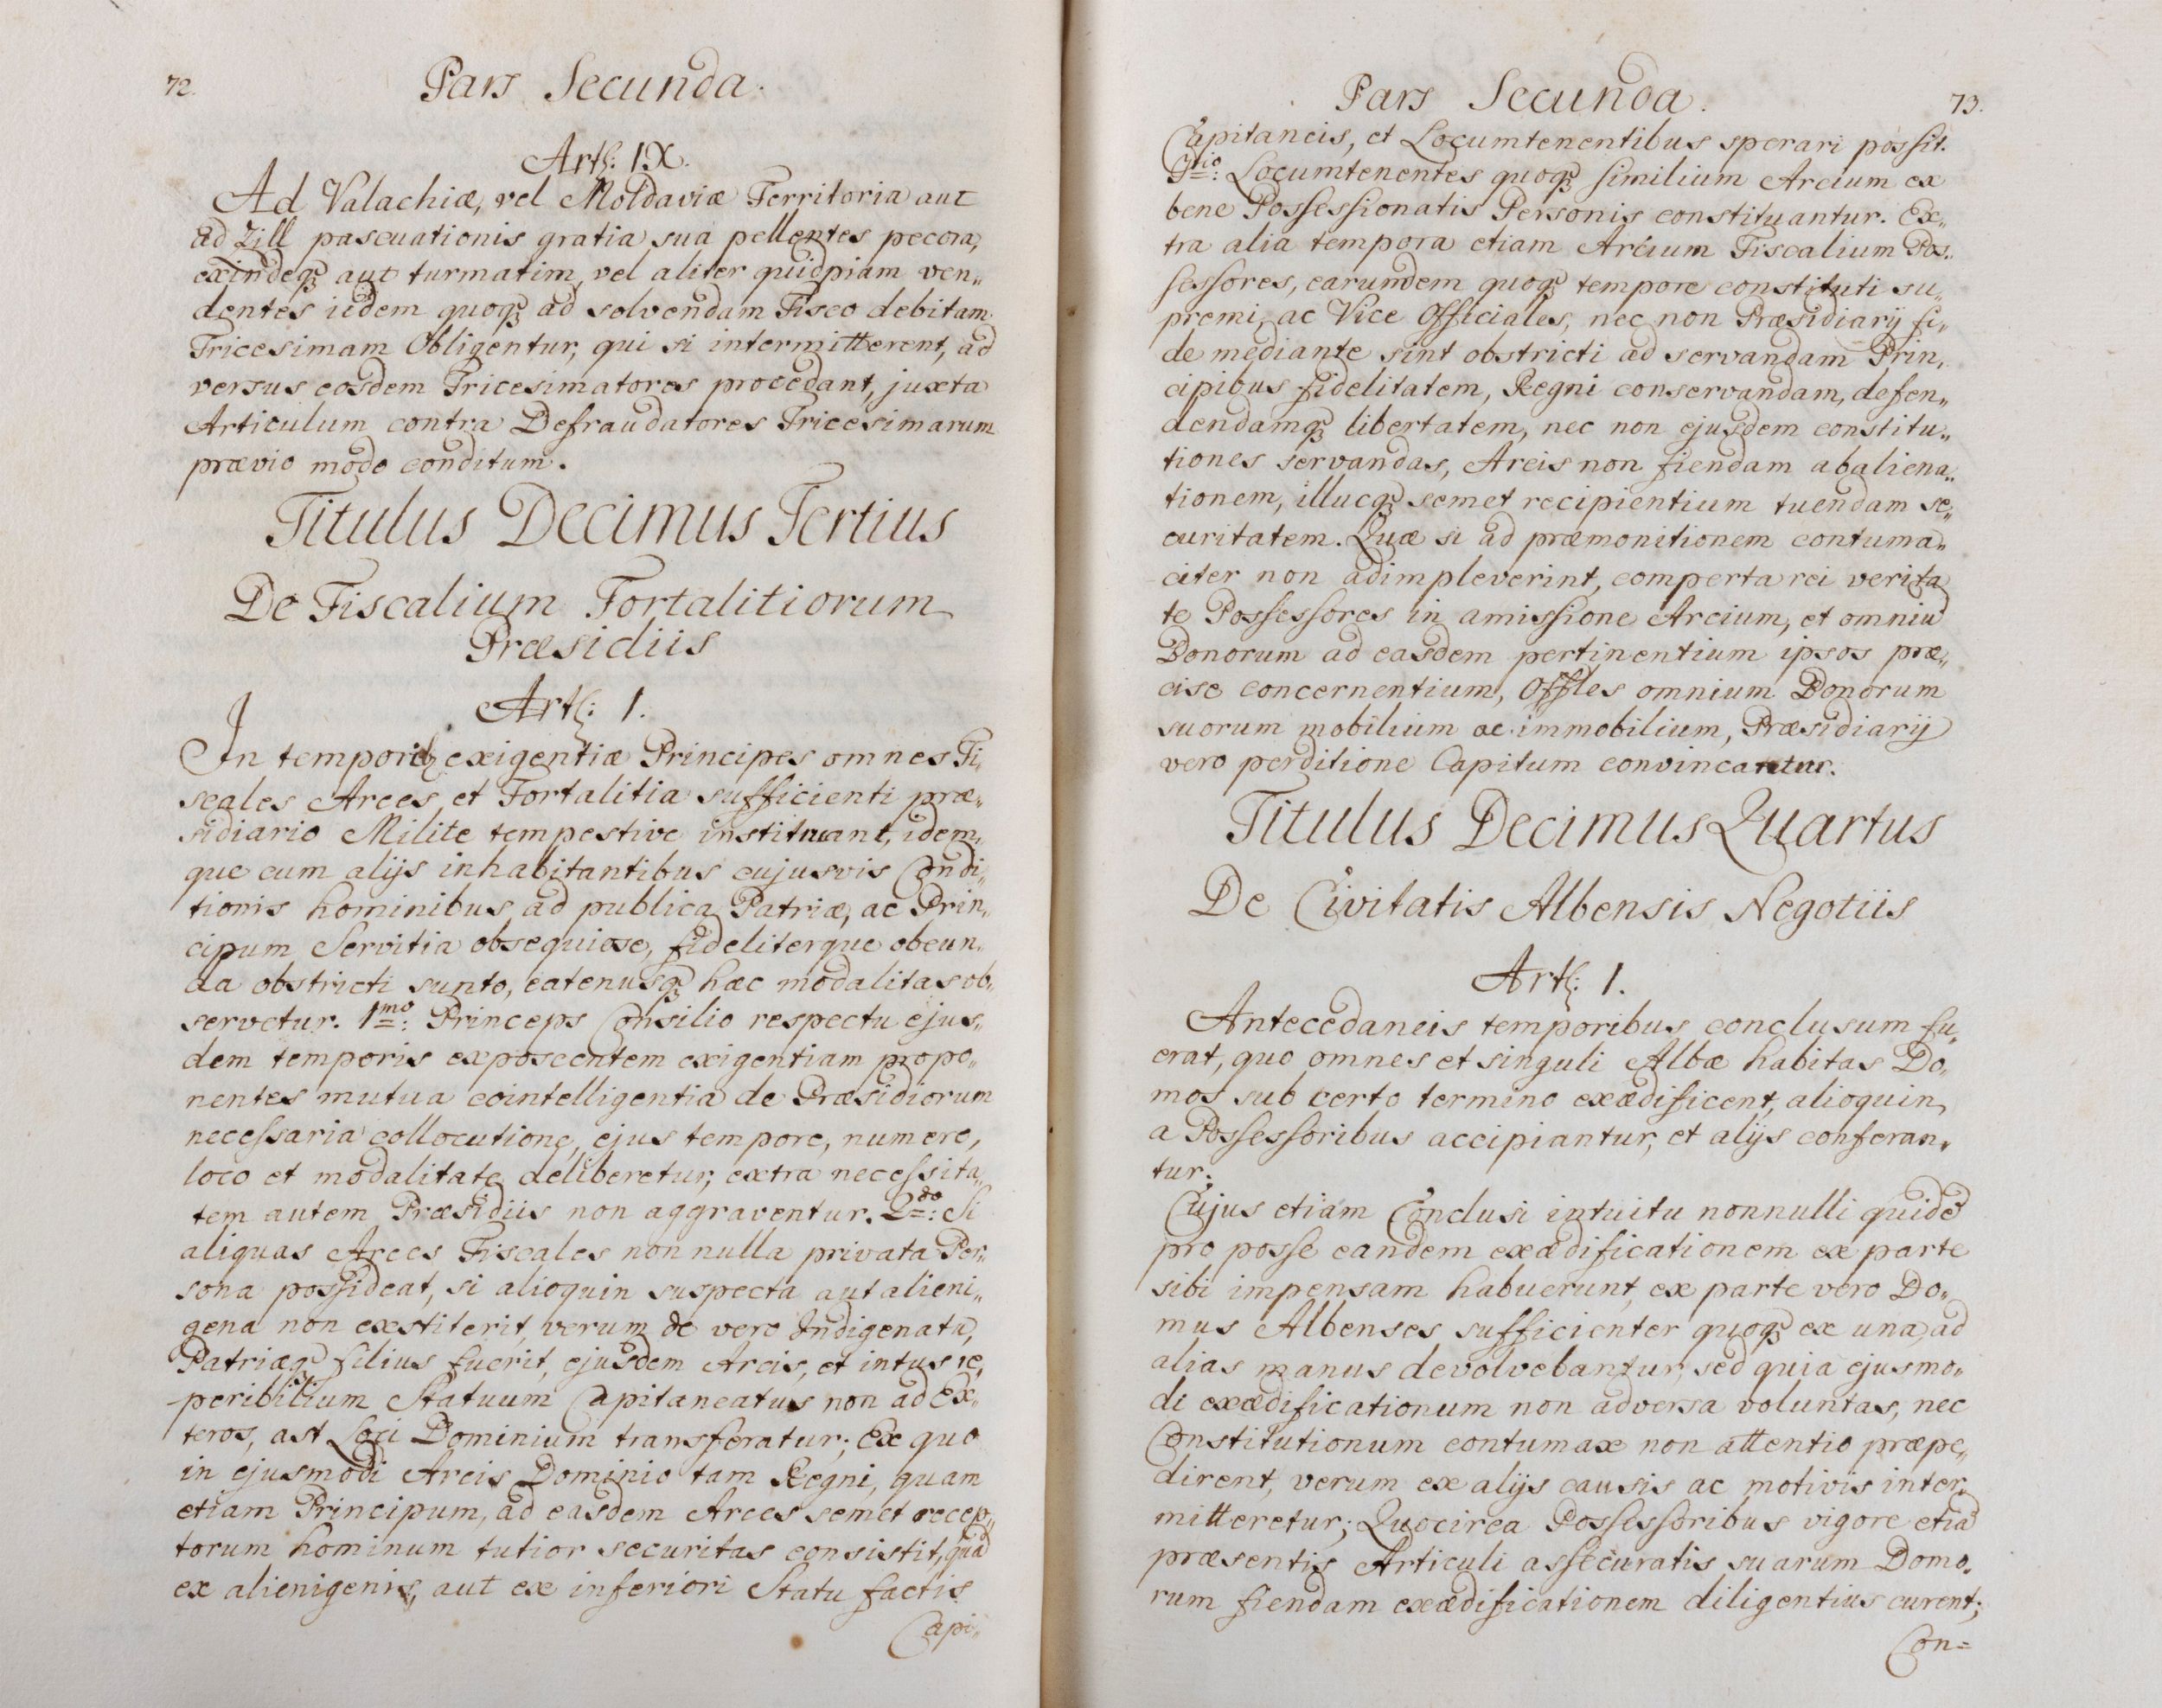 72.
Pars Secunda.
Artl: IX.
Ad Valachiæ, vel Moldaviæ Territoria aut
ad Zill pascuationis gratia sua pellentes pecora,
exindeqꝫ aut turmatim, vel aliter quidpiam ven„
dentes iidem quoqꝫ ad solvendam Fisco debitam
Tricesimam Obligentur, qui si intermitterent, ad
versus eosdem Tricesimatores procedant, juxta
Articulum contra Defraudatores Tricesimarum
prævio modo conditum.
Titulus Decimus Tertius
De Fiscalium Fortalitiorum
Præsidiis
Artl: I.
In temporis exigentiæ Principes omnes Fi„
scales Arces et Fortalitia sufficienti præ„
sidiario Milite tempestive instituant, idem„
que cum alijs inhabitantibus cujusvis Condi„
tionis hominibus ad publica Patriæ, ac Prin„
cipum Servitia obsequiose, fideliterque obeun„
da obstricti sunto, eatenusqꝫ hæc modalitas ob„
servetur. 1mo: Princeps Consilio respectu ejus„
dem temporis exposcentem exigentiam propo„
nentes mutua cointelligentia de Præsidiorum
necessaria collocutione, ejus tempore, numero,
loco et modalitate deliberetur; extra necessita„
tem autem Præsidiis non aggraventur. 2do: Si
aliquas Arces Fiscales nonnulla privata Per„
sona possideat, si alioquin suspecta aut alieni„
gena non exstiterit, verum de vero Indigenatu,
Patriæqꝫ filius fuerit, ejusdem Arcis, et intus re„
peribilium Statuum Capitaneatus non ad Ex„
teros, ast Loci Dominium transferatur; Ex quo
in ejusmodi Arcis Dominio tam Regni, quam
etiam Principum, ad easdem Arces semet recep„
torum hominum tutior securitas consistit, quā
ex alienigenis, aut ex inferiori Statu factis
Capi„
Pars Secunda.
73.
Capitaneis, et Locumtenentibus sperari possit.
3tio: Locumtenentes quoqꝫ similium Arcium ex
bene Possessionatis Personis constituantur. Ex„
tra alia tempora etiam Arcium Fiscalium Pos„
sessores, earumdem quoqꝫ tempore constituti su„
premi, ac Vice Officiales, nec non Præsidiarij fi„
de mediante sint obstricti ad servandam Prin„
cipibus fidelitatem, Regni conservandam, defen„
dendamqꝫ libertatem, nec non ejusdem constitu„
tiones servandas, Arcis non fiendam abaliena„
tionem, illucqꝫ semet recipientium tuendam se„
curitatem. Quæ si ad præmonitionem contuma„
citer non adimpleverint, comperta rei verita
te Possessores in amissione Arcium, et omniū
Bonorum ad easdem pertinentium ipsos præ„
cise concernentium, Offles omnium Bonorum
suorum mobilium ac immobilium, Præsidiarij
vero perditione Capitum convincantur.
Titulus Decimus Quartus
De Civitatis Albensis Negotiis
Artl: I.
Antecedaneis temporibus conclusum fu„
erat, quo omnes et singuli Albæ habitas Do„
mos sub certo termino exædificent, alioquin
a Possessoribus accipiantur, et alijs conferan„
tur;
Cujus etiam Conclusi intuitu nonnulli quidē
pro posse eandem exædificationem ex parte
sibi impensam habuerunt, ex parte vero Do„
mus Albenses sufficienter quoqꝫ ex una, ad
alias manus devolvebantur, sed quia ejusmo„
di exædificationum non adversa voluntas, nec
Constitutionum contumax non attentio præpe„
dirent, verum ex alijs causis ac motivis inter„
mitteretur; Quocirca Possessoribus vigore etiā
præsentis Articuli assecuratis suarum Domo„
rum fiendam exædificationem diligentius curent;
Con=